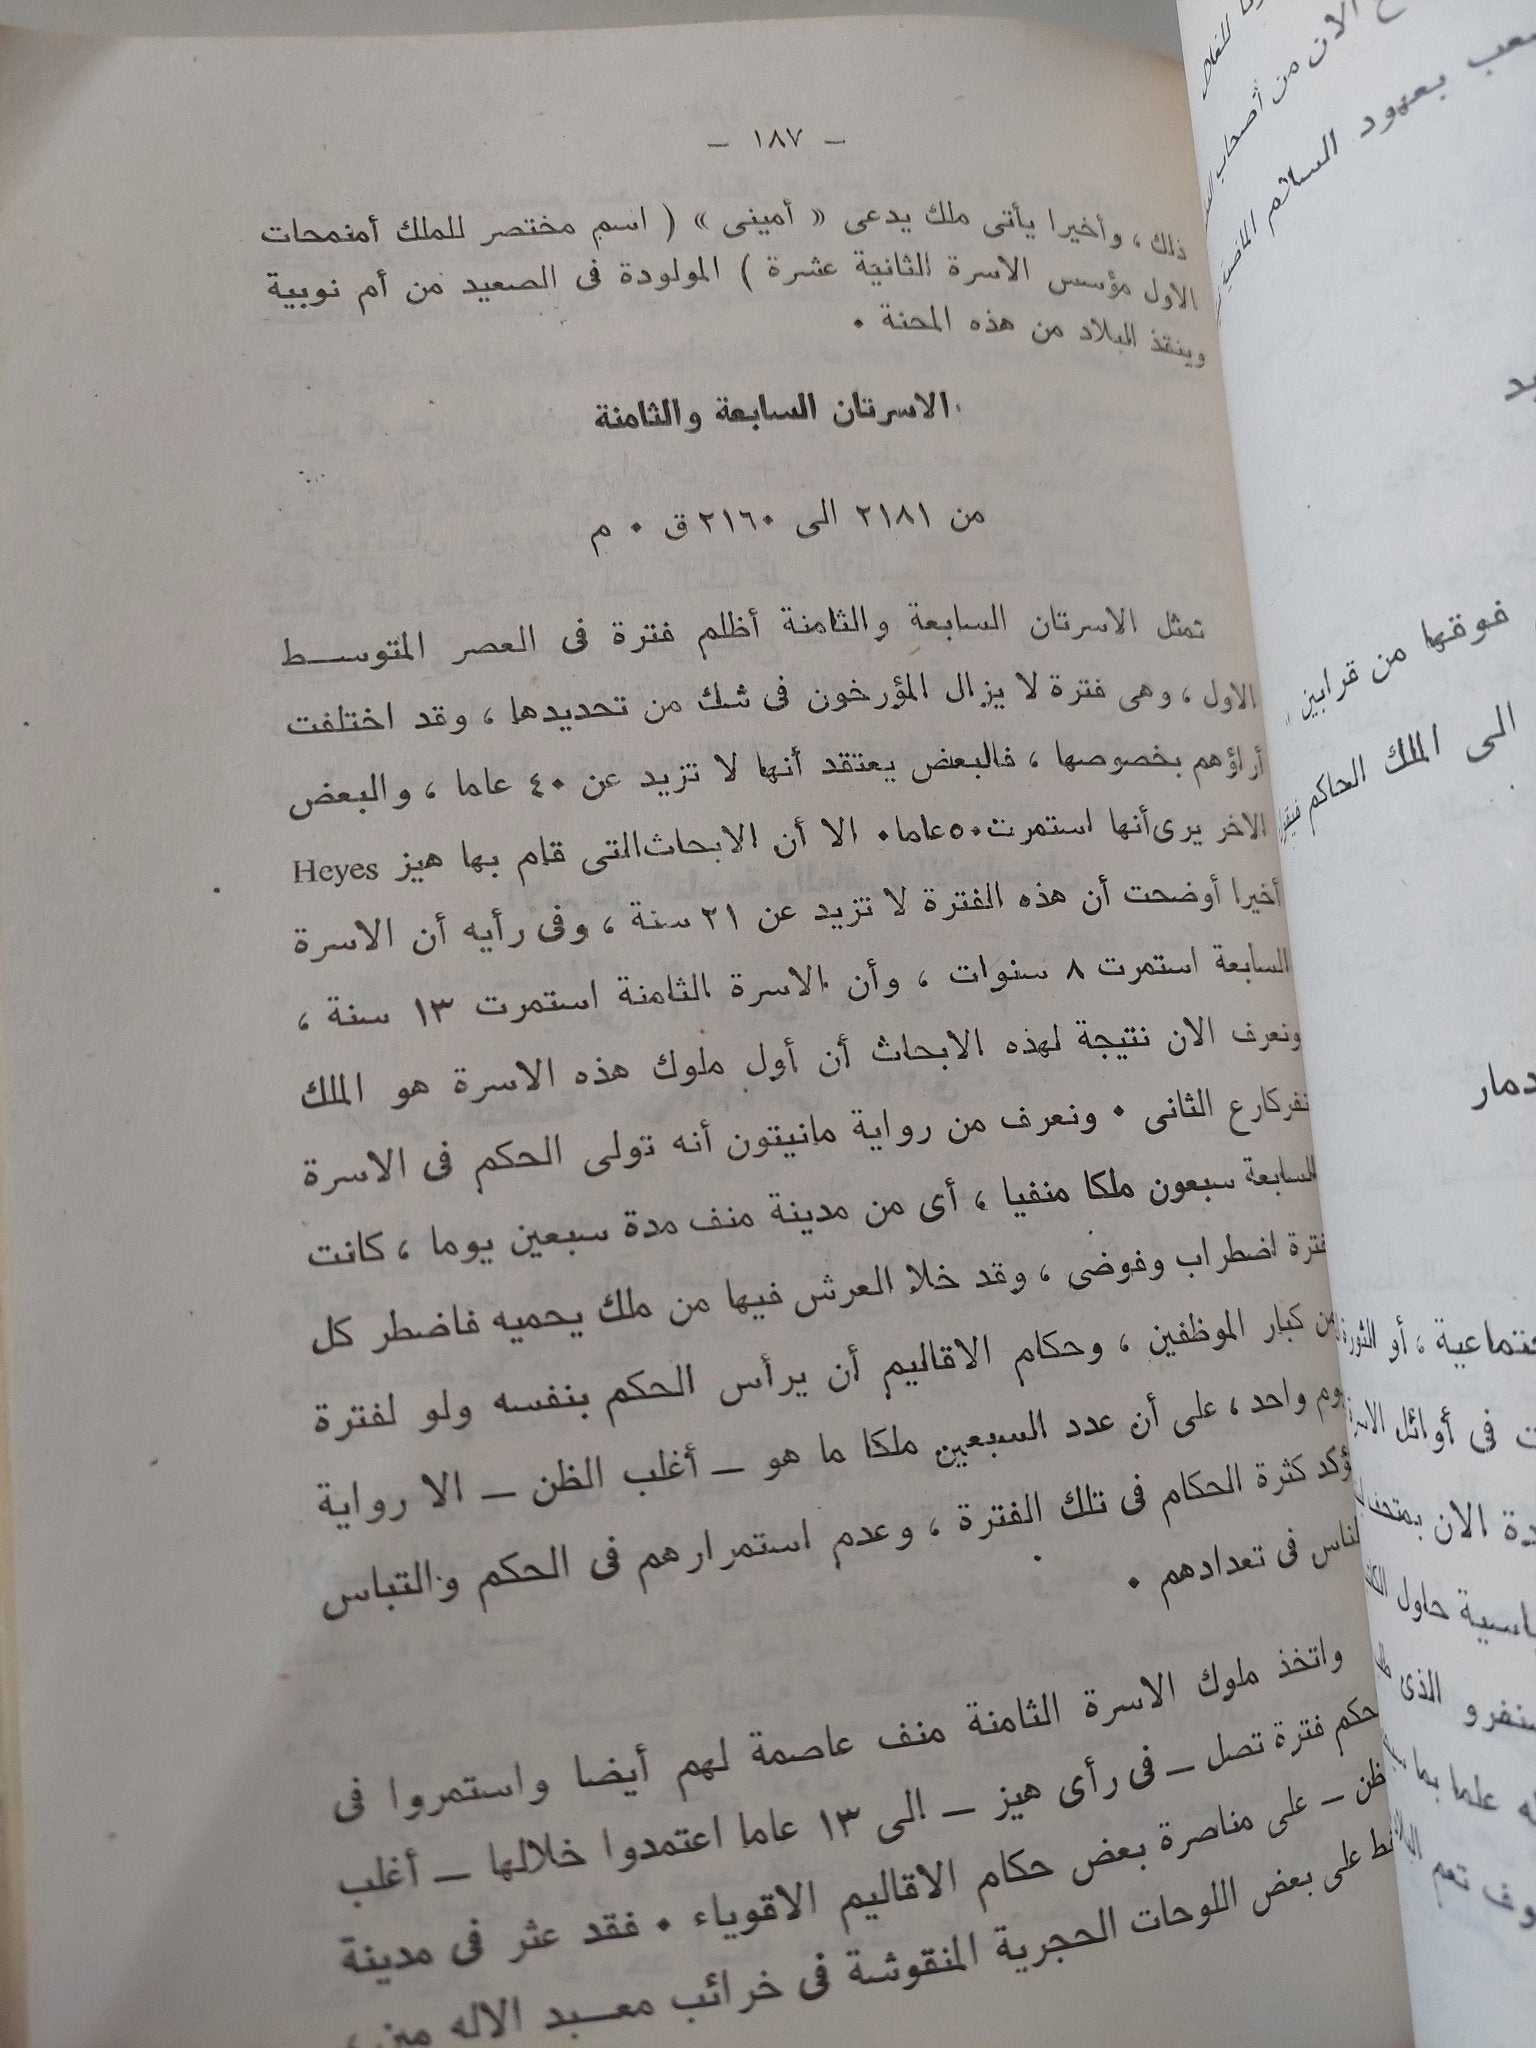 — ١٨٧ —
ذلك ، وأخيرا يأتى ملك يدعى « أمينى » ( اسم مختصر للملك أمنمحات
الاول مؤسس الاسرة الثانية عشرة ) المولودة فى الصعيد من أم نوبية
وينقذ البلاد من هذه المحنة ٠
الاسرتان السابعة والثامنة
من ٢١٨١ الى ٢١٦٠ ق ٠ م
تمثل الاسرتان السابعة والثامنة أظلم فترة فى العصر المتوسط
الاول ، وهى فترة لا يزال المؤرخون فى شك من تحديدها ، وقد اختلفت
أراؤهم بخصوصها ، فالبعض يعتقد أنها لا تزيد عن ٤٠ عاما ، والبعض
الاخر يرى أنها استمرت ٥٠ عاما ٠ الا أن الابحاث التى قام بها هيز Heyes
أخيرا أوضحت أن هذه الفترة لا تزيد عن ٢١ سنة ، وفى رأيه أن الاسرة
السابعة استمرت ٨ سنوات ، وأن الاسرة الثامنة استمرت ١٣ سنة ،
ونعرف الان نتيجة لهذه الابحاث أن أول ملوك هذه الاسرة هو الملك
نفركارع الثانى ٠ ونعرف من رواية مانيتون أنه تولى الحكم فى الاسرة
السابعة سبعون ملكا منفيا ، أى من مدينة منف مدة سبعين يوما ، كانت
فترة اضطراب وفوضى ، وقد خلا العرش فيها من ملك يحميه فاضطر كل
من كبار الموظفين ، وحكام الاقاليم أن يرأس الحكم بنفسه ولو لفترة
يوم واحد ، على أن عدد السبعين ملكا ما هو — أغلب الظن — الا رواية
تؤكد كثرة الحكام فى تلك الفترة ، وعدم استمرارهم فى الحكم والتباس
الناس فى تعدادهم ٠
واتخذ ملوك الاسرة الثامنة منف عاصمة لهم أيضا واستمروا فى
حكم فترة تصل — فى رأى هيز — الى ١٣ عاما اعتمدوا خلالها — أغلب
الظن — على مناصرة بعض حكام الاقاليم الاقوياء ٠ فقد عثر فى مدينة
على بعض اللوحات الحجرية المنقوشة فى خرائب معبد الاله مين ،
الان من أصحاب
بعهود السلام
فوقها من قرابين
الى الملك الحاكم
، أو الثورة
فى أوائل
الان
حاول
الذى
علما بما
تعم